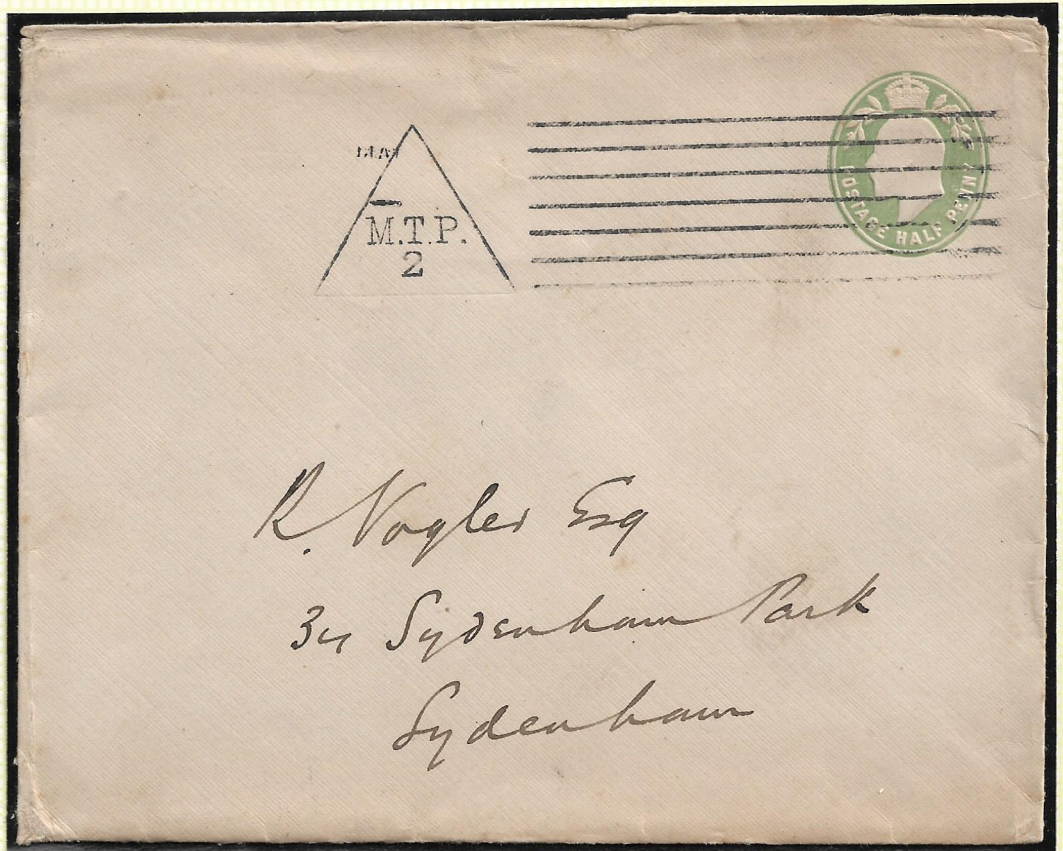 M.T.P.
2
POSTAGE HALF PENNY
R. Vogler Esq
34 Sydenham Park
Sydenham